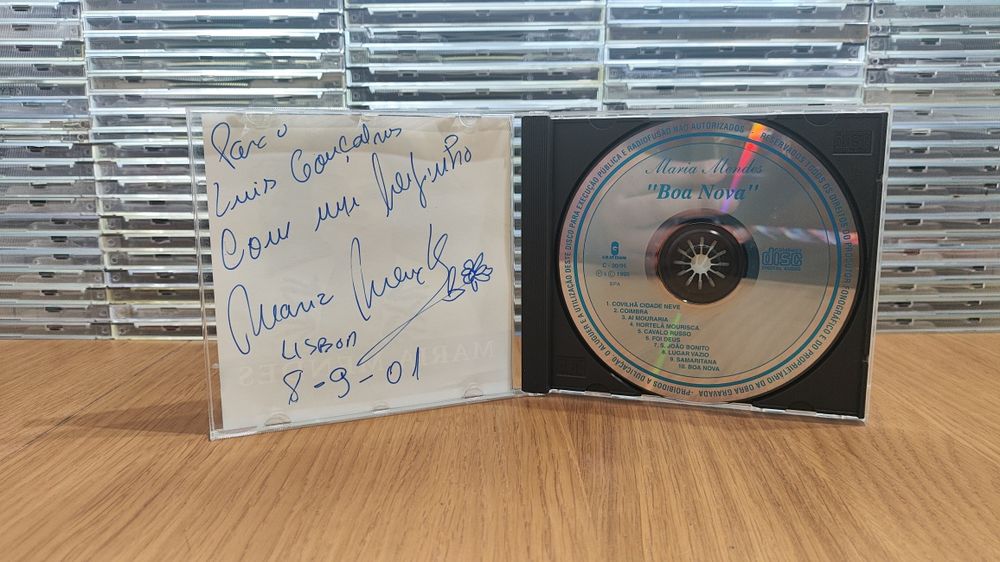 Para o
Luis Gonçalves
Com um beijinho
Maria Mendes
LISBOA
8-9-01
RESERVADOS TODOS OS DIREITOS DO PRODUTOR FONOGRÁFICO E DO PROPRIETÁRIO DA OBRA GRAVADA - PROIBIDOS A DUPLICAÇÃO O ALUGUER E A UTILIZAÇÃO DESTE DISCO PARA EXECUÇÃO PÚBLICA E RADIOFUSÃO NÃO AUTORIZADOS
Maria Mendes
"Boa Nova"
COMPACT
disc
DIGITAL AUDIO
SPA
1. COVILHÃ CIDADE NEVE
2. COIMBRA
3. AI MOURARIA
4. HORTELÃ MOURISCA
5. CAVALO RUSSO
6. FOI DEUS
7. S. JOÃO BONITO
8. LUGAR VAZIO
9. SAMARITANA
10. BOA NOVA